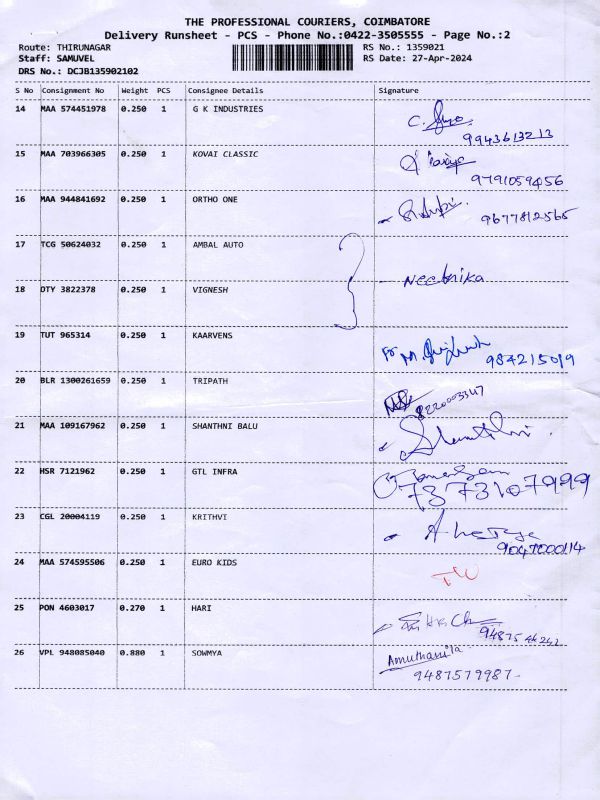 THE PROFESSIONAL COURIERS, COIMBATORE
Delivery Runsheet - PCS - Phone No.:0422-3505555 - Page No.:2
Route: THIRUNAGAR RS No.: 1359021
Staff: SAMUVEL RS Date: 27-Apr-2024
DRS No.: DCJB135902102
S No Consignment No Weight PCS Consignee Details Signature
14 MAA 574451978 0.250 1 G K INDUSTRIES
9943613213
15 MAA 703966305 0.250 1 KOVAI CLASSIC
9791059456
16 MAA 944841692 0.250 1 ORTHO ONE
9677812565
17 TCG 50624032 0.250 1 AMBAL AUTO
Neethika
18 DTY 3822378 0.250 1 VIGNESH
19 TUT 965314 0.250 1 KAARVENS
984215019
20 BLR 1300261659 0.250 1 TRIPATH
8220003347
21 MAA 109167962 0.250 1 SHANTHNI BALU
22 HSR 7121962 0.250 1 GTL INFRA
7873107999
23 CGL 20004119 0.250 1 KRITHVI
9047000114
24 MAA 574595506 0.250 1 EURO KIDS
25 PON 4603017 0.270 1 HARI
26 VPL 948085040 0.880 1 SOWMYA
Amuthamila
9487579987